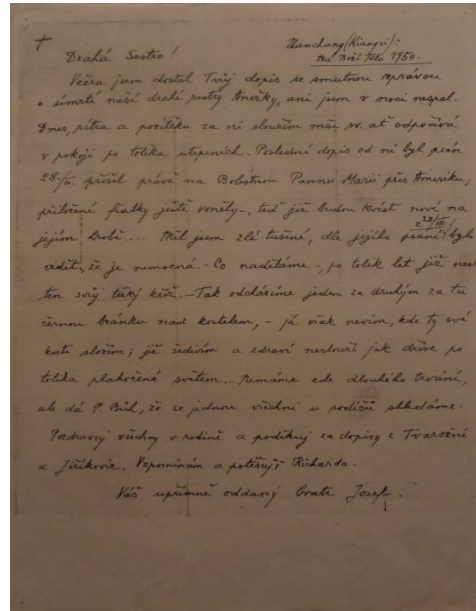 +
Nanchang (Kiangsi):
na Boží Tělo 1950.
Drahá Sestro!
Včera jsem dostal Tvůj dopis se smutnou zprávou
o úmrtí naší drahé sestry Anežky, ani jsem v noci nespal.
Dnes, zítra a pozítřku za ni sloužím mše sv. ať odpočívá
v pokoji po tolika utrpeních. Poslední dopis od ní byl psán
28./II. přišel právě na Bolestnou Pannu Marii přes Ameriku,
přiložené fialky ještě voněly-, teď již budou kvést nové na
jejím hrobě.... Měl jsem zlé tušení, dle jejího psaní z 28/III/ bylo
vidět, že je nemocná. - Co naděláme -, po tolik let již nesla
ten svůj těžký kříž. - Tak odcházíme jeden za druhým za tu
černou bránku nad kostelem, - já však nevím, kde ty své
kosti složím; již šedivím a zdraví neslouží jak dříve po
tolika plahočení světem... Nemáme zde dlouhého trvání,
ale dá P. Bůh, že se jednou všichni u rodičů shledáme.
Pozdravuj všechny v rodině a poděkuj za dopisy z Tvarožné
a Jiříkovic. Vzpomínám a potěšuji Richarda.
Váš upřímně oddaný bratr Josef.